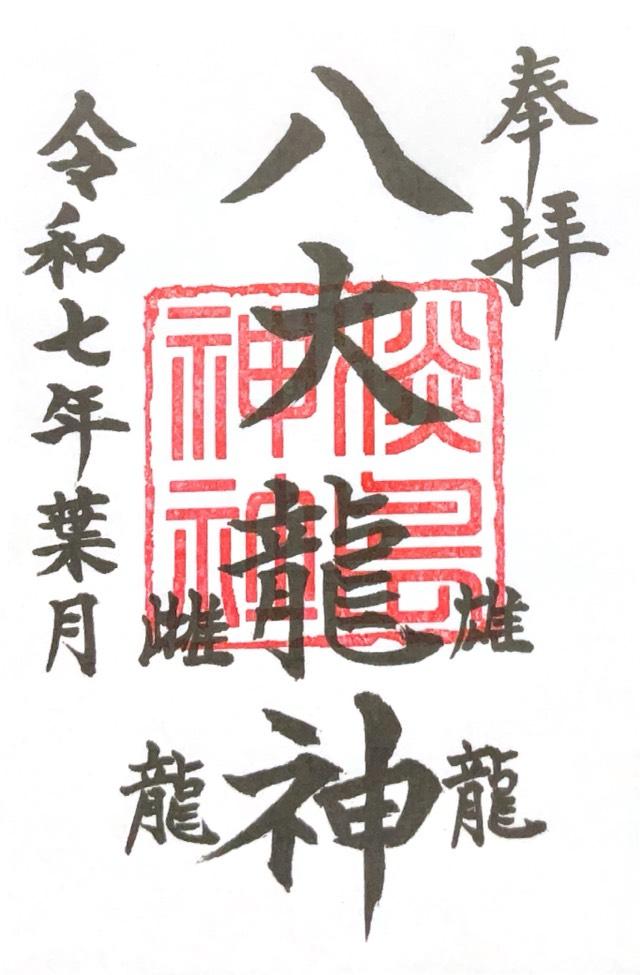 奉拝
雄龍
八大龍神
淡島
神
雌龍
令和七年葉月